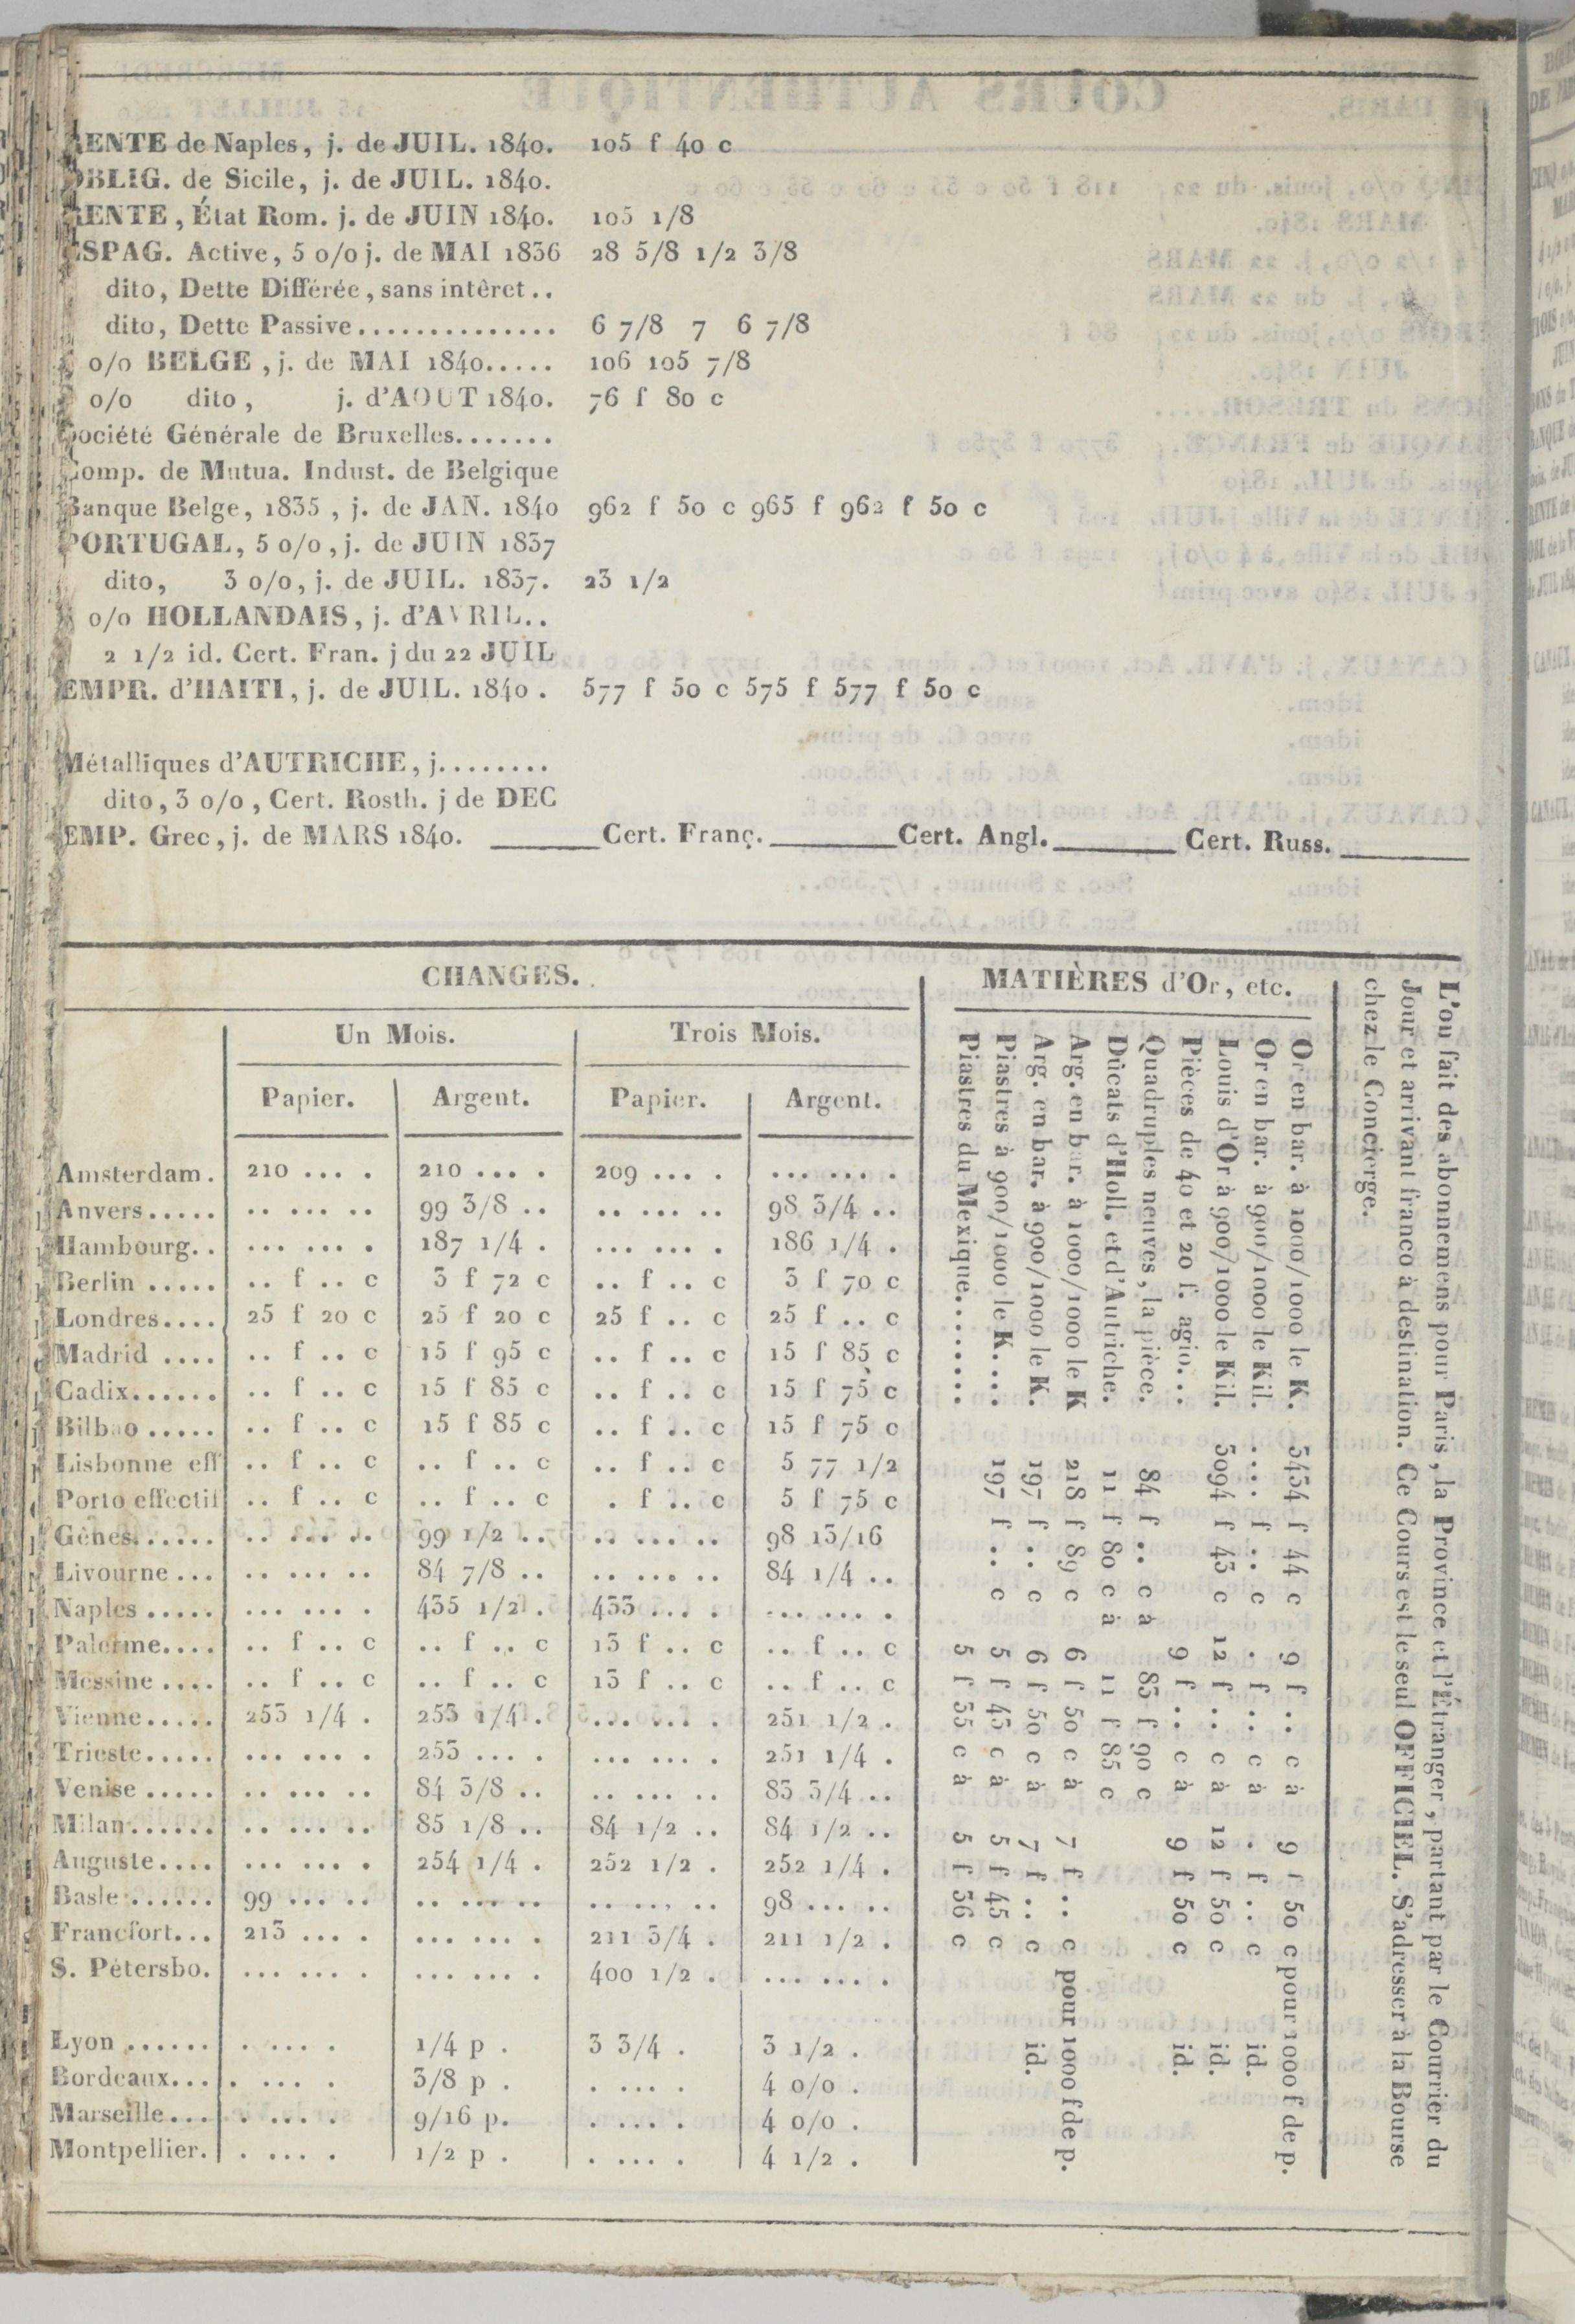 RENTE de Naples, j. de JUIL. 1840. 105 f 40 c
OBLIG. de Sicile, j. de JUIL. 1840.
RENTE, État Rom. j. de JUIN 1840. 105 1/8
ESPAG. Active, 5 0/0 j. de MAI 1836 28 5/8 1/2 3/8
dito, Dette Différée, sans intêret..
dito, Dette Passive.............. 6 7/8 7 6 7/8
0/0 BELGE, j. de MAI 1840..... 106 105 7/8
0/0 dito, j. d'AOUT 1840. 76 f 80 c
Société Générale de Bruxelles.......
Comp. de Mutua. Indust. de Belgique
Banque Belge, 1835, j. de JAN. 1840 962 f 50 c 965 f 962 f 50 c
PORTUGAL, 5 0/0, j. de JUIN 1837
dito, 3 0/0, j. de JUIL. 1837. 23 1/2
0/0 HOLLANDAIS, j. d'AVRIL..
2 1/2 id. Cert. Fran. j du 22 JUIL
EMPR. d'HAITI, j. de JUIL. 1840. 577 f 50 c 575 f 577 f 50 c
Métalliques d'AUTRICHE, j........
dito, 3 0/0, Cert. Rosth. j de DEC
EMP. Grec, j. de MARS 1840. ______Cert. Franç.______Cert. Angl.______Cert. Russ.______
CHANGES.
Un Mois. Trois Mois.
Papier. Argent. Papier. Argent.
Amsterdam. 210 ... . 210 ... . 209 ... . ... ... .
Anvers..... .. ... .. 99 3/8 .. .. ... .. 98 3/4 ..
Hambourg.. ... ... . 187 1/4 . ... ... . 186 1/4 .
Berlin ..... .. f .. c 3 f 72 c .. f .. c 3 f 70 c
Londres.... 25 f 20 c 25 f 20 c 25 f .. c 25 f .. c
Madrid .... .. f .. c 15 f 95 c .. f .. c 15 f 85 c
Cadix...... .. f .. c 15 f 85 c .. f .. c 15 f 75 c
Bilbao ..... .. f .. c 15 f 85 c .. f .. c 15 f 75 c
Lisbonne eff .. f .. c .. f .. c .. f .. c 5 77 1/2
Porto effectif .. f .. c .. f .. c . f .. c 5 f 75 c
Gênes...... .. ... .. 99 1/2 .. .. ... .. 98 13/16
Livourne ... .. ... .. 84 7/8 .. .. ... .. 84 1/4 ..
Naples ..... ... ... . 435 1/2 . 433 ... . ... ... .
Palerme.... .. f .. c .. f .. c 13 f .. c .. f .. c
Messine .... .. f .. c .. f .. c 13 f .. c .. f .. c
Vienne..... 253 1/4 . 253 1/4 . ... ... . 251 1/2 .
Trieste..... ... ... . 253 ... . ... ... . 251 1/4 .
Venise ..... .. ... .. 84 3/8 .. .. ... .. 83 3/4 ..
Milan...... .. ... .. 85 1/8 .. 84 1/2 .. 84 1/2 ..
Auguste.... ... ... . 254 1/4 . 252 1/2 . 252 1/4 .
Basle...... 99 ... .. .. ... .. .. ... .. 98 ... ..
Francfort... 213 ... . ... ... . 211 3/4 . 211 1/2 .
S. Pétersbo. ... ... . ... ... . 400 1/2 . ... ... .
Lyon ...... . ... . 1/4 p . 3 3/4 . 3 1/2 .
Bordeaux... . ... . 3/8 p . . ... . 4 0/0 .
Marseille... . ... . 9/16 p. . ... . 4 0/0 .
Montpellier. . ... . 1/2 p . . ... . 4 1/2 .
MATIÈRES d'Or, etc.
Or en bar. à 1000/1000 le K. 3434 f 44 c 9 f .. c à 9 f 50 c pour 1000 f de p.
Or en bar. à 900/1000 le Kil. .... f .. c . f .. c à . f .. c id.
Louis d'Or à 900/1000 le Kil. 3094 f 43 c 12 f .. c à 12 f 50 c id.
Pièces de 40 et 20 f. agio... 9 f .. c à 9 f 50 c id.
Quadruples neuves, la pièce. 84 f .. c à 83 f 90 c
Dùcats d'Holl. et d'Autriche. 11 f 80 c à 11 f 85 c
Arg. en bar. à 1000/1000 le K 218 f 89 c 6 f 50 c à 7 f .. c pour 1000 f de p.
Arg. en bar. à 900/1000 le K. 197 f .. c 6 f 50 c à 7 f .. c id.
Piastres à 900/1000 le K.... 197 f .. c 5 f 45 c à 5 f 45 c
Piastres du Mexique........ 5 f 35 c à 5 f 36 c
L'on fait des abonnemens pour Paris, la Province et l'Étranger, partant par le Courrier du
Jour et arrivant franco à destination. Ce Cours est le seul OFFICIEL. S'adresser à la Bourse
chez le Concierge.